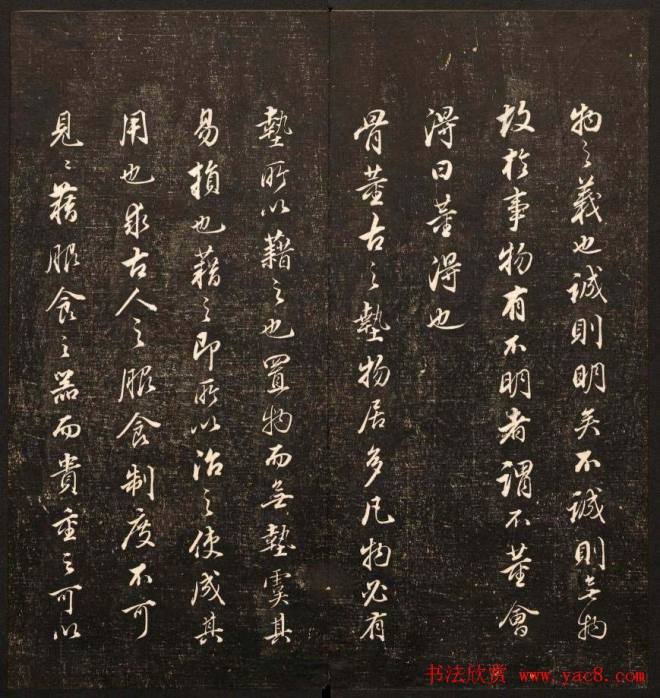 物之義也誠則明矣不誠則無物
故於事物有不明者謂不董會
得曰董得也
骨董古之墊物居多凡物必有
墊所以藉之也置物而無墊虞其
易損也藉之即所以治之使成其
用也求古人之服食制度不可
見〻藉服食之器而貴重之可以
书法欣赏 www.yac8.com